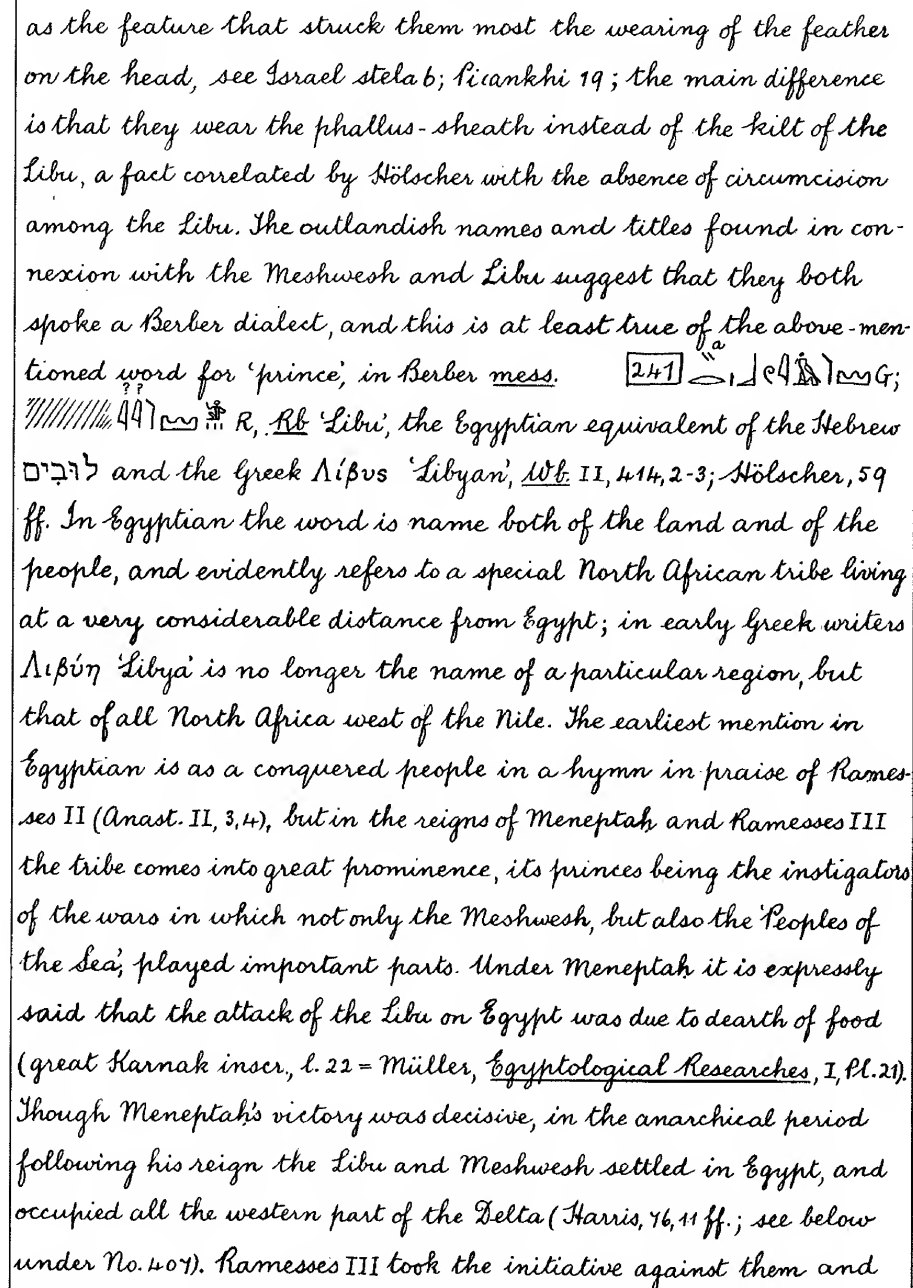 as the feature that struck them most the wearing of the feather
on the head, see Israel stela 6; Piankhi 19; the main difference
is that they wear the phallus-sheath instead of the kilt of the
Libu, a fact correlated by Hölscher with the absence of circumcision
among the Libu. The outlandish names and titles found in con-
nexion with the Meshwesh and Libu suggest that they both
spoke a Berber dialect, and this is at least true of the above-men-
tioned word for 'prince', in Berber mess. 241 a G;
?? R, Rb 'Libu', the Egyptian equivalent of the Hebrew
לוּבִים and the Greek Λίβυς 'Libyan', Wb. II, 414, 2-3; Hölscher, 59
ff. In Egyptian the word is name both of the land and of the
people, and evidently refers to a special North African tribe living
at a very considerable distance from Egypt; in early Greek writers
Λιβύη 'Libya' is no longer the name of a particular region, but
that of all North Africa west of the Nile. The earliest mention in
Egyptian is as a conquered people in a hymn in praise of Rames-
ses II (Anast. II, 3,4), but in the reigns of Meneptah and Ramesses III
the tribe comes into great prominence, its princes being the instigators
of the wars in which not only the Meshwesh, but also the 'Peoples of
the Sea', played important parts. Under Meneptah it is expressly
said that the attack of the Libu on Egypt was due to dearth of food
(great Karnak inscr., l. 22 = Müller, Egyptological Researches, I, Pl. 21).
Though Meneptah's victory was decisive, in the anarchical period
following his reign the Libu and Meshwesh settled in Egypt, and
occupied all the western part of the Delta (Harris, 76, 11 ff.; see below
under No. 407). Ramesses III took the initiative against them and